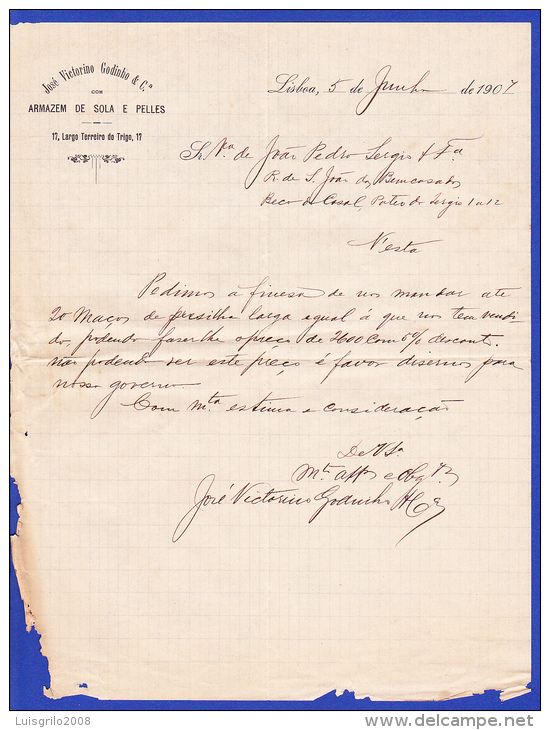 José Victorino Godinho & C.ª
COM
ARMAZEM DE SOLA E PELLES
17, Largo Terreiro do Trigo, 17
Lisboa, 5 de Junho de 1907
Sr. Vª de João Pedro Sergio & Fª
R. de S. João dos Bemcasados
Beco do Casal, Pateo do Sergio 1 a 12
N'esta
Pedimos a finesa de nos mandar até
20 Maços de presilha larga egual á que nos tem vendi
do, podendo faser-lhe o preço de 2600 com 6% descont.
não podendo ser este preço é favor diser-nos para
nosso governo
Com mta estima e consideração
De V Sª
Mto Attos e Obgdos
José Victorino Godinho & Cª
Luisgrilo2008
delcampe.net